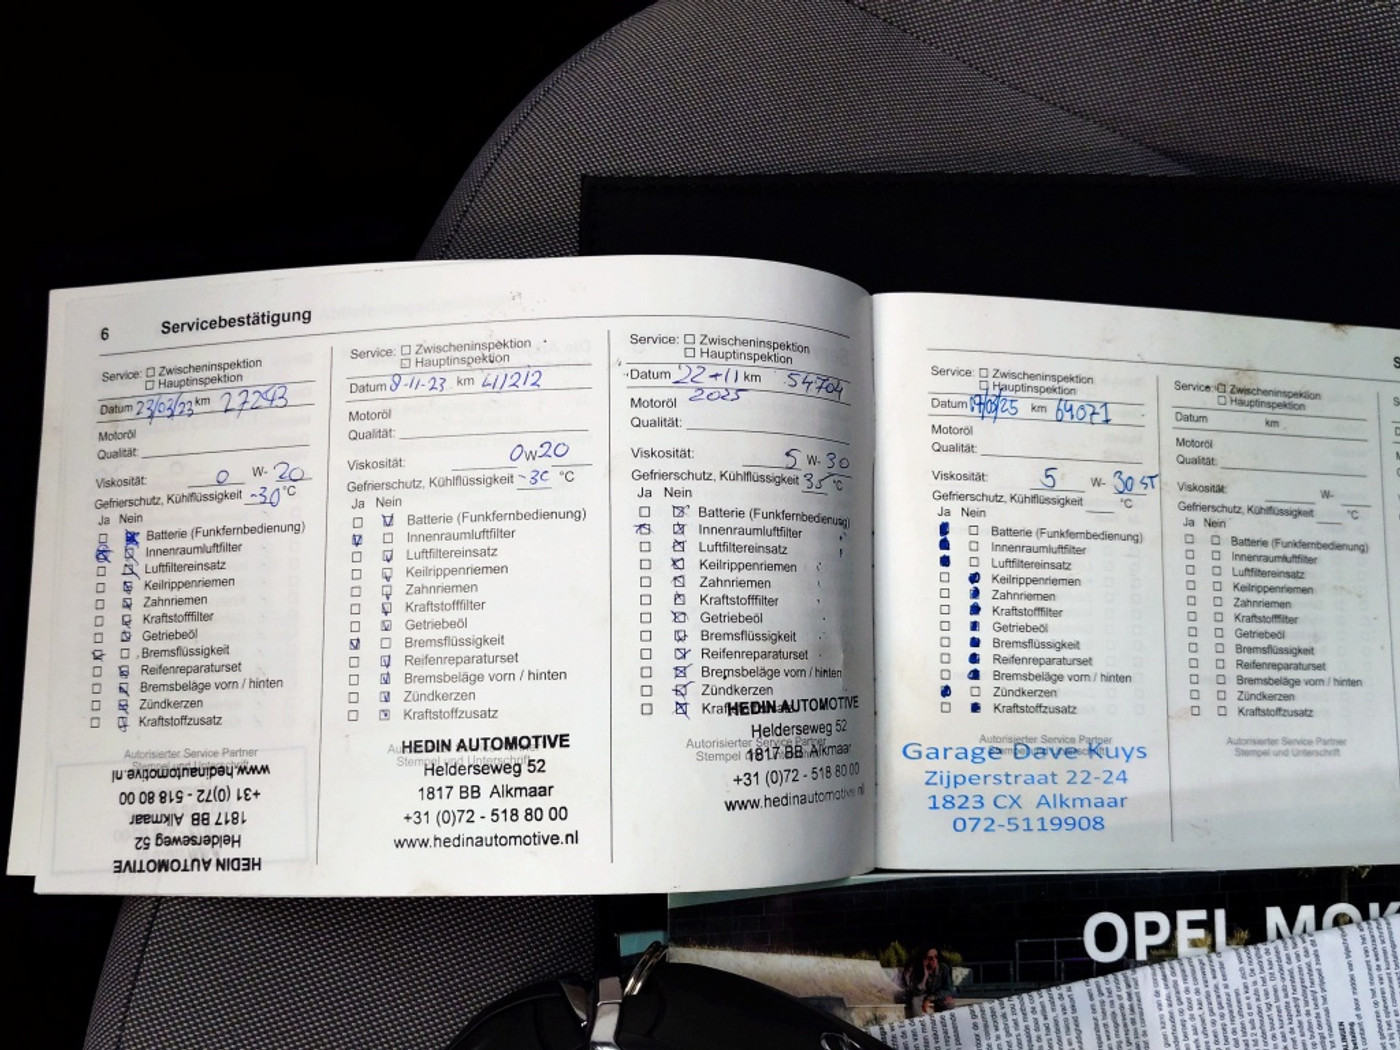 6 Servicebestätigung
Service: Zwischeninspektion
Hauptinspektion
Datum 23/03/23 km 27243
Motoröl
Qualität:
Viskosität: 0 W- 20
Gefrierschutz, Kühlflüssigkeit -30 °C
Ja Nein
Batterie (Funkfernbedienung)
Innenraumluftfilter
Luftfiltereinsatz
Keilrippenriemen
Zahnriemen
Kraftstofffilter
Getriebeöl
Bremsflüssigkeit
Reifenreparaturset
Bremsbeläge vorn / hinten
Zündkerzen
Kraftstoffzusatz
Autorisierter Service Partner
Stempel und Unterschrift
HEDIN AUTOMOTIVE
Helderseweg 52
1817 BB Alkmaar
+31 (0)72 - 518 80 00
www.hedinautomotive.nl
Service: Zwischeninspektion
Hauptinspektion
Datum 8-11-23 km 41212
Motoröl
Qualität:
Viskosität: 0W20
Gefrierschutz, Kühlflüssigkeit -30 °C
Ja Nein
Batterie (Funkfernbedienung)
Innenraumluftfilter
Luftfiltereinsatz
Keilrippenriemen
Zahnriemen
Kraftstofffilter
Getriebeöl
Bremsflüssigkeit
Reifenreparaturset
Bremsbeläge vorn / hinten
Zündkerzen
Kraftstoffzusatz
Autorisierter Service Partner
Stempel und Unterschrift
HEDIN AUTOMOTIVE
Helderseweg 52
1817 BB Alkmaar
+31 (0)72 - 518 80 00
www.hedinautomotive.nl
Service: Zwischeninspektion
Hauptinspektion
Datum 22-11 km 54704
2025
Motoröl
Qualität:
Viskosität: 5 W- 30
Gefrierschutz, Kühlflüssigkeit 35 °C
Ja Nein
Batterie (Funkfernbedienung)
Innenraumluftfilter
Luftfiltereinsatz
Keilrippenriemen
Zahnriemen
Kraftstofffilter
Getriebeöl
Bremsflüssigkeit
Reifenreparaturset
Bremsbeläge vorn / hinten
Zündkerzen
Autorisierter Service Partner
Stempel
HEDIN AUTOMOTIVE
Helderseweg 52
1817 BB Alkmaar
+31 (0)72 - 518 80 00
www.hedinautomotive.nl
S
Service: Zwischeninspektion
Hauptinspektion
Datum km 64071
Motoröl
Qualität:
Viskosität: 5 W- 30 ST
Gefrierschutz, Kühlflüssigkeit °C
Ja Nein
Batterie (Funkfernbedienung)
Innenraumluftfilter
Luftfiltereinsatz
Keilrippenriemen
Zahnriemen
Kraftstofffilter
Getriebeöl
Bremsflüssigkeit
Reifenreparaturset
Bremsbeläge vorn / hinten
Zündkerzen
Kraftstoffzusatz
Autorisierter Service Partner
Stempel und Unterschrift
Garage Dave Kuys
Zijperstraat 22-24
1823 CX Alkmaar
072-5119908
Service: Zwischeninspektion
Hauptinspektion
Datum km
Motoröl
Qualität:
Viskosität: W-
Gefrierschutz, Kühlflüssigkeit °C
Ja Nein
Batterie (Funkfernbedienung)
Innenraumluftfilter
Luftfiltereinsatz
Keilrippenriemen
Zahnriemen
Kraftstofffilter
Getriebeöl
Bremsflüssigkeit
Reifenreparaturset
Bremsbeläge vorn / hinten
Zündkerzen
Kraftstoffzusatz
Autorisierter Service Partner
Stempel und Unterschrift
OPEL MOK